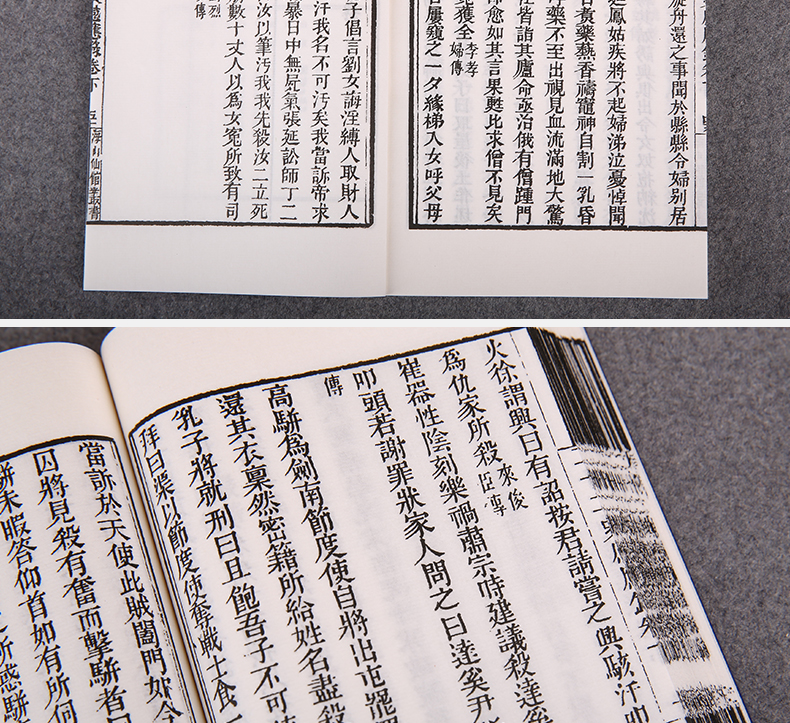 旋舟還之事聞於縣縣令婦別居
鳳姑疾將不起婦涕泣憂悼聞
者賣藥爇香禱竈神自割一乳昏
藥不至出視見血流滿地大驚
皆詣其廬命亟治俄有僧踵門
愈如其言果甦比求僧不見矣
獲全李孝婦傳
屢窺之一夕緣梯入女呼父母
子倡言劉女誨淫縛人取財人
汙我名不可汚矣我當訴帝求
暴日中無屍氣張延訟師丁二
汝以筆汚我我先殺汝二立死
數十丈人以為女寃所致有司
傳
卷下
火徐謂興曰有詔按君請嘗之興駭汗叩
為仇家所殺來俊臣傳
崔器性陰刻樂禍肅宗時建議殺達奚尹
叩頭若謝罪狀家人問之曰達奚尹
傳
高駢為劍南節度使自將出屯罷
還其衣稟然密籍所給姓名盡殺
乳子將就刑曰且飽吾子不可
拜曰渠以節度使奪戰士食
當訴於天使此賊闔門如今
囚將見殺有奮而擊駢者
駢未暇答仰首如有所伺
所惑駢